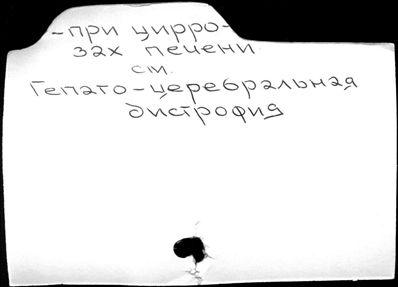 -при цирро-
зах печени
см.
Гепато-церебральная
дистрофия